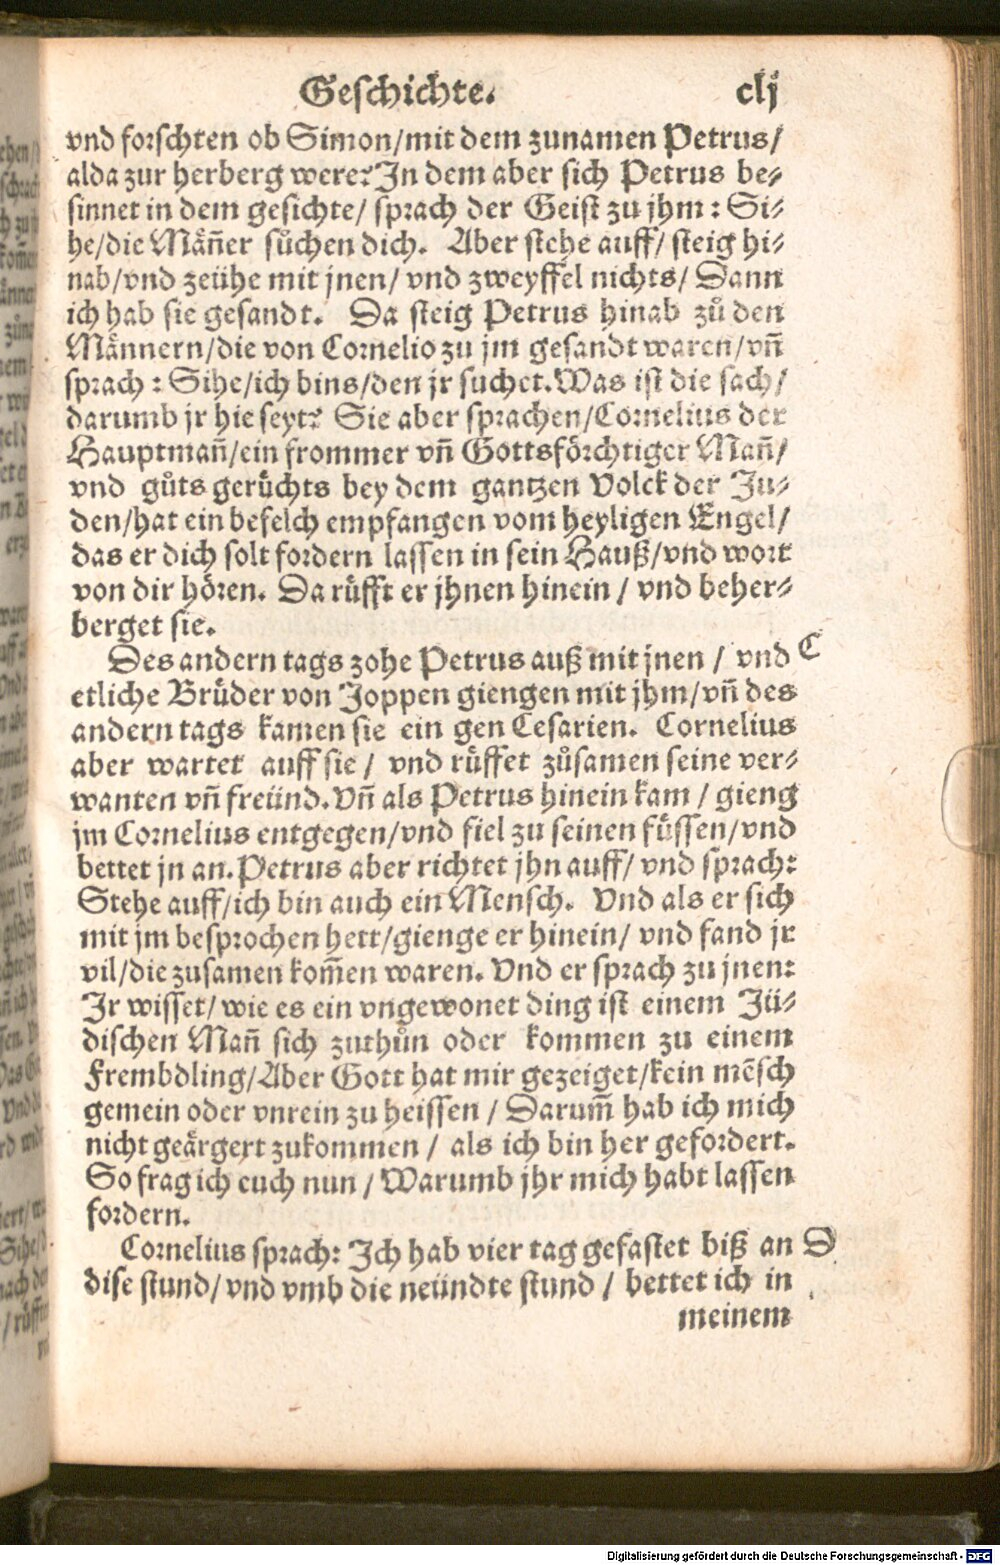 Geschichte. clj
vnd forschten ob Simon/mit dem zunamen Petrus/
alda zur herberg were? In dem aber sich Petrus be⸗
sinnet in dem gesichte/ sprach der Geist zu jhm : Si⸗
he/die Mañer sůchen dich. Aber stehe auff/ steig hi⸗
nab/vnd zeühe mit jnen/ vnd zweyffel nichts/ Dann
ich hab sie gesandt. Da steig Petrus hinab zů den
Männern/die von Cornelio zu jm gesandt waren/vñ
sprach : Sihe/ich bins/den jr suchet. Was ist die sach/
darumb jr hie seyt? Sie aber sprachen/Cornelius der
Hauptmañ/ein frommer vñ Gottsförchtiger Mañ/
vnd gůts gerüchts bey dem gantzen Volck der Ju⸗
den/hat ein befelch empfangen vom heyligen Engel/
das er dich solt fordern lassen in sein Hauß/vnd wort
von dir hören. Da rüfft er jhnen hinein / vnd beher⸗
berget sie.
Des andern tags zohe Petrus auß mit jnen / vnd C
etliche Brüder von Joppen giengen mit jhm/vñ des
andern tags kamen sie ein gen Cesarien. Cornelius
aber wartet auff sie / vnd rüffet zůsamen seine ver⸗
wanten vñ freünd. Vñ als Petrus hinein kam / gieng
jm Cornelius entgegen/vnd fiel zu seinen füssen/vnd
bettet jn an. Petrus aber richtet jhn auff/ vnd sprach:
Stehe auff/ich bin auch ein Mensch. Vnd als er sich
mit jm besprochen hett/gienge er hinein/ vnd fand jr
vil/die zusamen kom̃en waren. Vnd er sprach zu jnen:
Jr wisset/ wie es ein vngewonet ding ist einem Jü⸗
dischen Mañ sich zuthůn oder kommen zu einem
Frembdling/Aber Gott hat mir gezeiget/kein mẽsch
gemein oder vnrein zu heissen / Darum̃ hab ich mich
nicht geärgert zukommen / als ich bin her gefordert.
So frag ich euch nun / Warumb jhr mich habt lassen
fordern.
Cornelius sprach: Ich hab vier tag gefastet biß an D
dise stund/ vnd vmb die neündte stund / bettet ich in
meinem
Digitalisierung gefördert durch die Deutsche Forschungsgemeinschaft - DFG